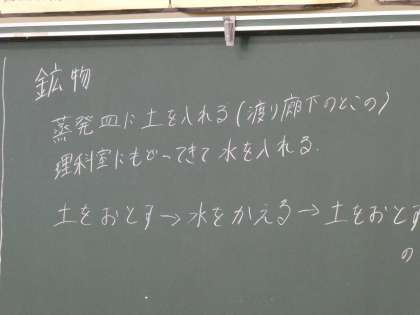 鉱物
蒸発皿に土を入れる(渡り廊下のとこの)
理科室にもどってきて水を入れる.
土をおとす→水をかえる→土をおとす
の